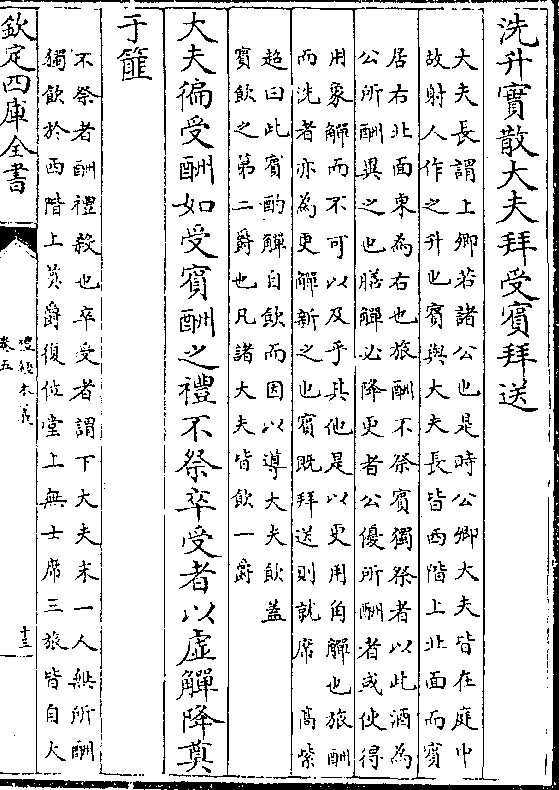 洗升實散大夫拜受賓拜送
大夫長謂上卿若諸公也是時公卿大夫皆在庭中
故射人作之升也賓與大夫長皆西階上北面而賓
居右北面東為右也旅酬不祭賓獨祭者以此酒為
公所酬異之也膳觶必降更者公優所酬者或使得
用象觶而不可以及乎其他是以更用角觶也旅酬
而洗者亦為更觶新之也賓既拜送則就席　高紫
超曰此賓酌觶自飲而因以導大夫飲蓋
賓飲之第二爵也凡諸大夫皆飲一爵
大夫徧受酬如受賓酬之禮不祭卒受者以虛觶降奠
于篚
不祭者酬禮殺也卒受者謂下大夫末一人無所酬
獨飲於西階上奠爵復位堂上無士席三旅皆自大
欽定四庫全書
禮經本義
卷五
十三